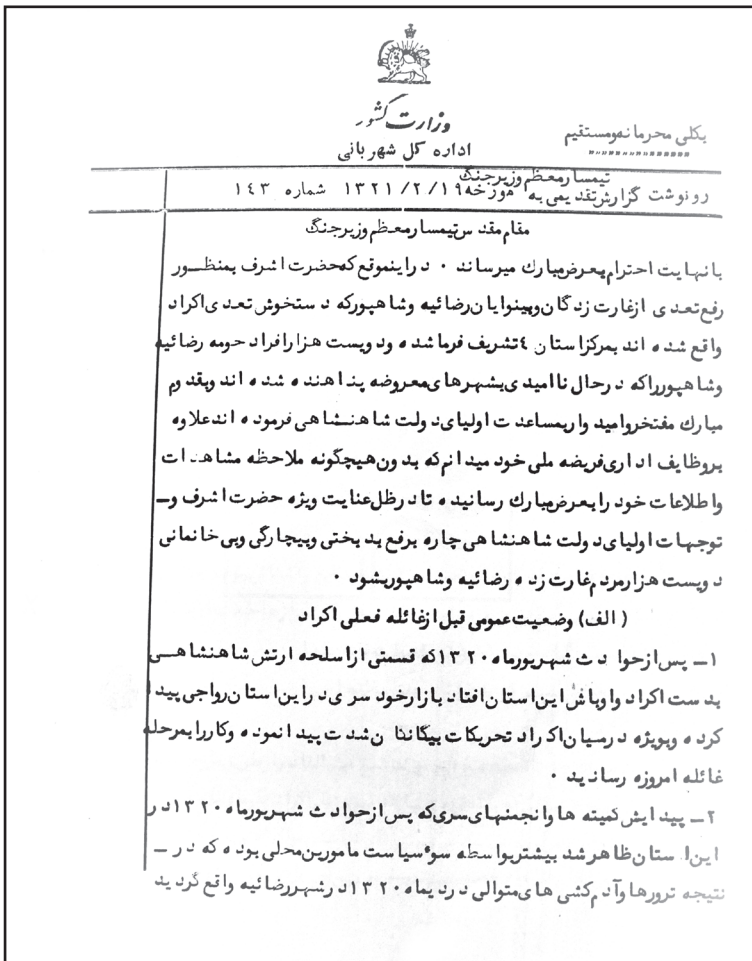 وزارت کشور
اداره کل شهربانی
بکلی محرمانه و مستقیم
تیمسار معظم وزیر جنگ
رونوشت گزارش تقدیمی به مورخه ۱۳۲۱/۲/۱۹ شماره ۱۴۳
مقام مقدس تیمسار معظم وزیر جنگ
با نهایت احترام بعرض مبارک میرساند ۰ در اینموقع که حضرت اشرف بمنظـور
رفع تعدی از غارت زدگان و بینوایان رضائیه و شاهپور که دستخوش تعدی اکراد
واقع شده اند بمرکز استان ٤ تشریف فرما شده و دویست هزار افراد حومه رضائیه
و شاهپور را که در حال نا امیدی بشهرهای معروضه پناهنده شده اند و بقدوم
مبارک مفتخر و امید وار بمساعدت اولیای دولت شاهنشاهی فرموده اند علاوه
بر وظایف اداری فریضه ملی خود میدانم که بدون هیچگونه ملاحظه مشاهدات
و اطلاعات خود را بعرض مبارک رسانیده تا در ظل عنایت ویژه حضرت اشرف و ـ
توجهات اولیای دولت شاهنشاهی چاره بر رفع بدبختی و بیچارگی و بی خانمانی
دویست هزار مردم غارت زده رضائیه و شاهپور بشود ۰
(الف) وضعیت عمومی قبل از غائله فعلی اکراد
۱ـ پس از حوادث شهریور ماه ۱۳۲۰ که قسمتی از اسلحه ارتش شاهنشاهـی
بدست اکراد و اوباش این استان افتاد بازار خود سری در این استان رواجی پیدا
کرده و بویژه در میان اکراد تحریکات بیگانگان شدت پیدا نموده و کار را بمرحله
غائله امروزه رسانید ۰
۲ـ پیدایش کمیته ها و انجمنهای سری که پس از حوادث شهریور ماه ۱۳۲۰ در
این استان ظاهر شد بیشتر بواسطه سوء سیاست مامورین محلی بوده که در ـ
نتیجه ترورها و آدم کشی های متوالی در دیماه ۱۳۲۰ در شهر رضائیه واقع گردید